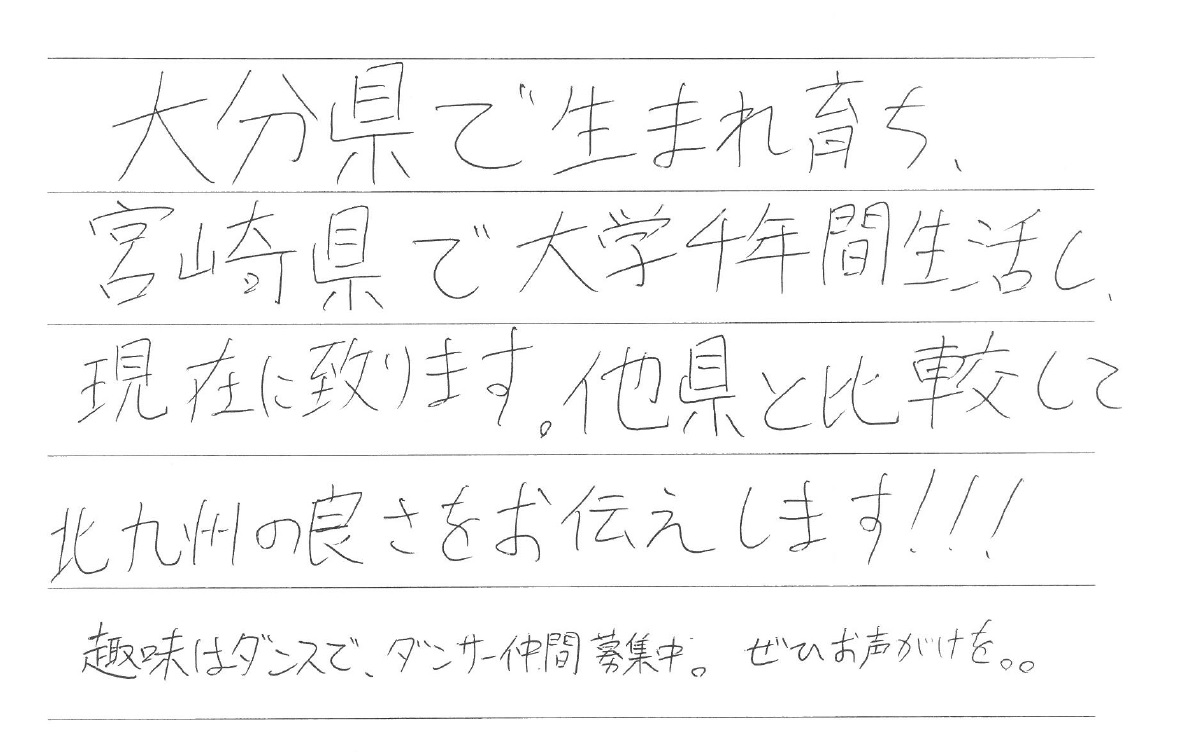 大分県で生まれ育ち、
宮崎県で大学4年間生活し、
現在に致ります。他県と比較して
北九州の良さをお伝えします!!!
趣味はダンスで、ダンサー仲間募集中。ぜひお声がけを。。